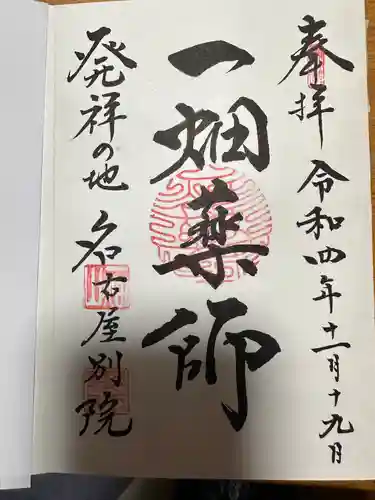 奉拝 令和四年十一月十九日
一畑薬師
発祥の地 名古屋別院